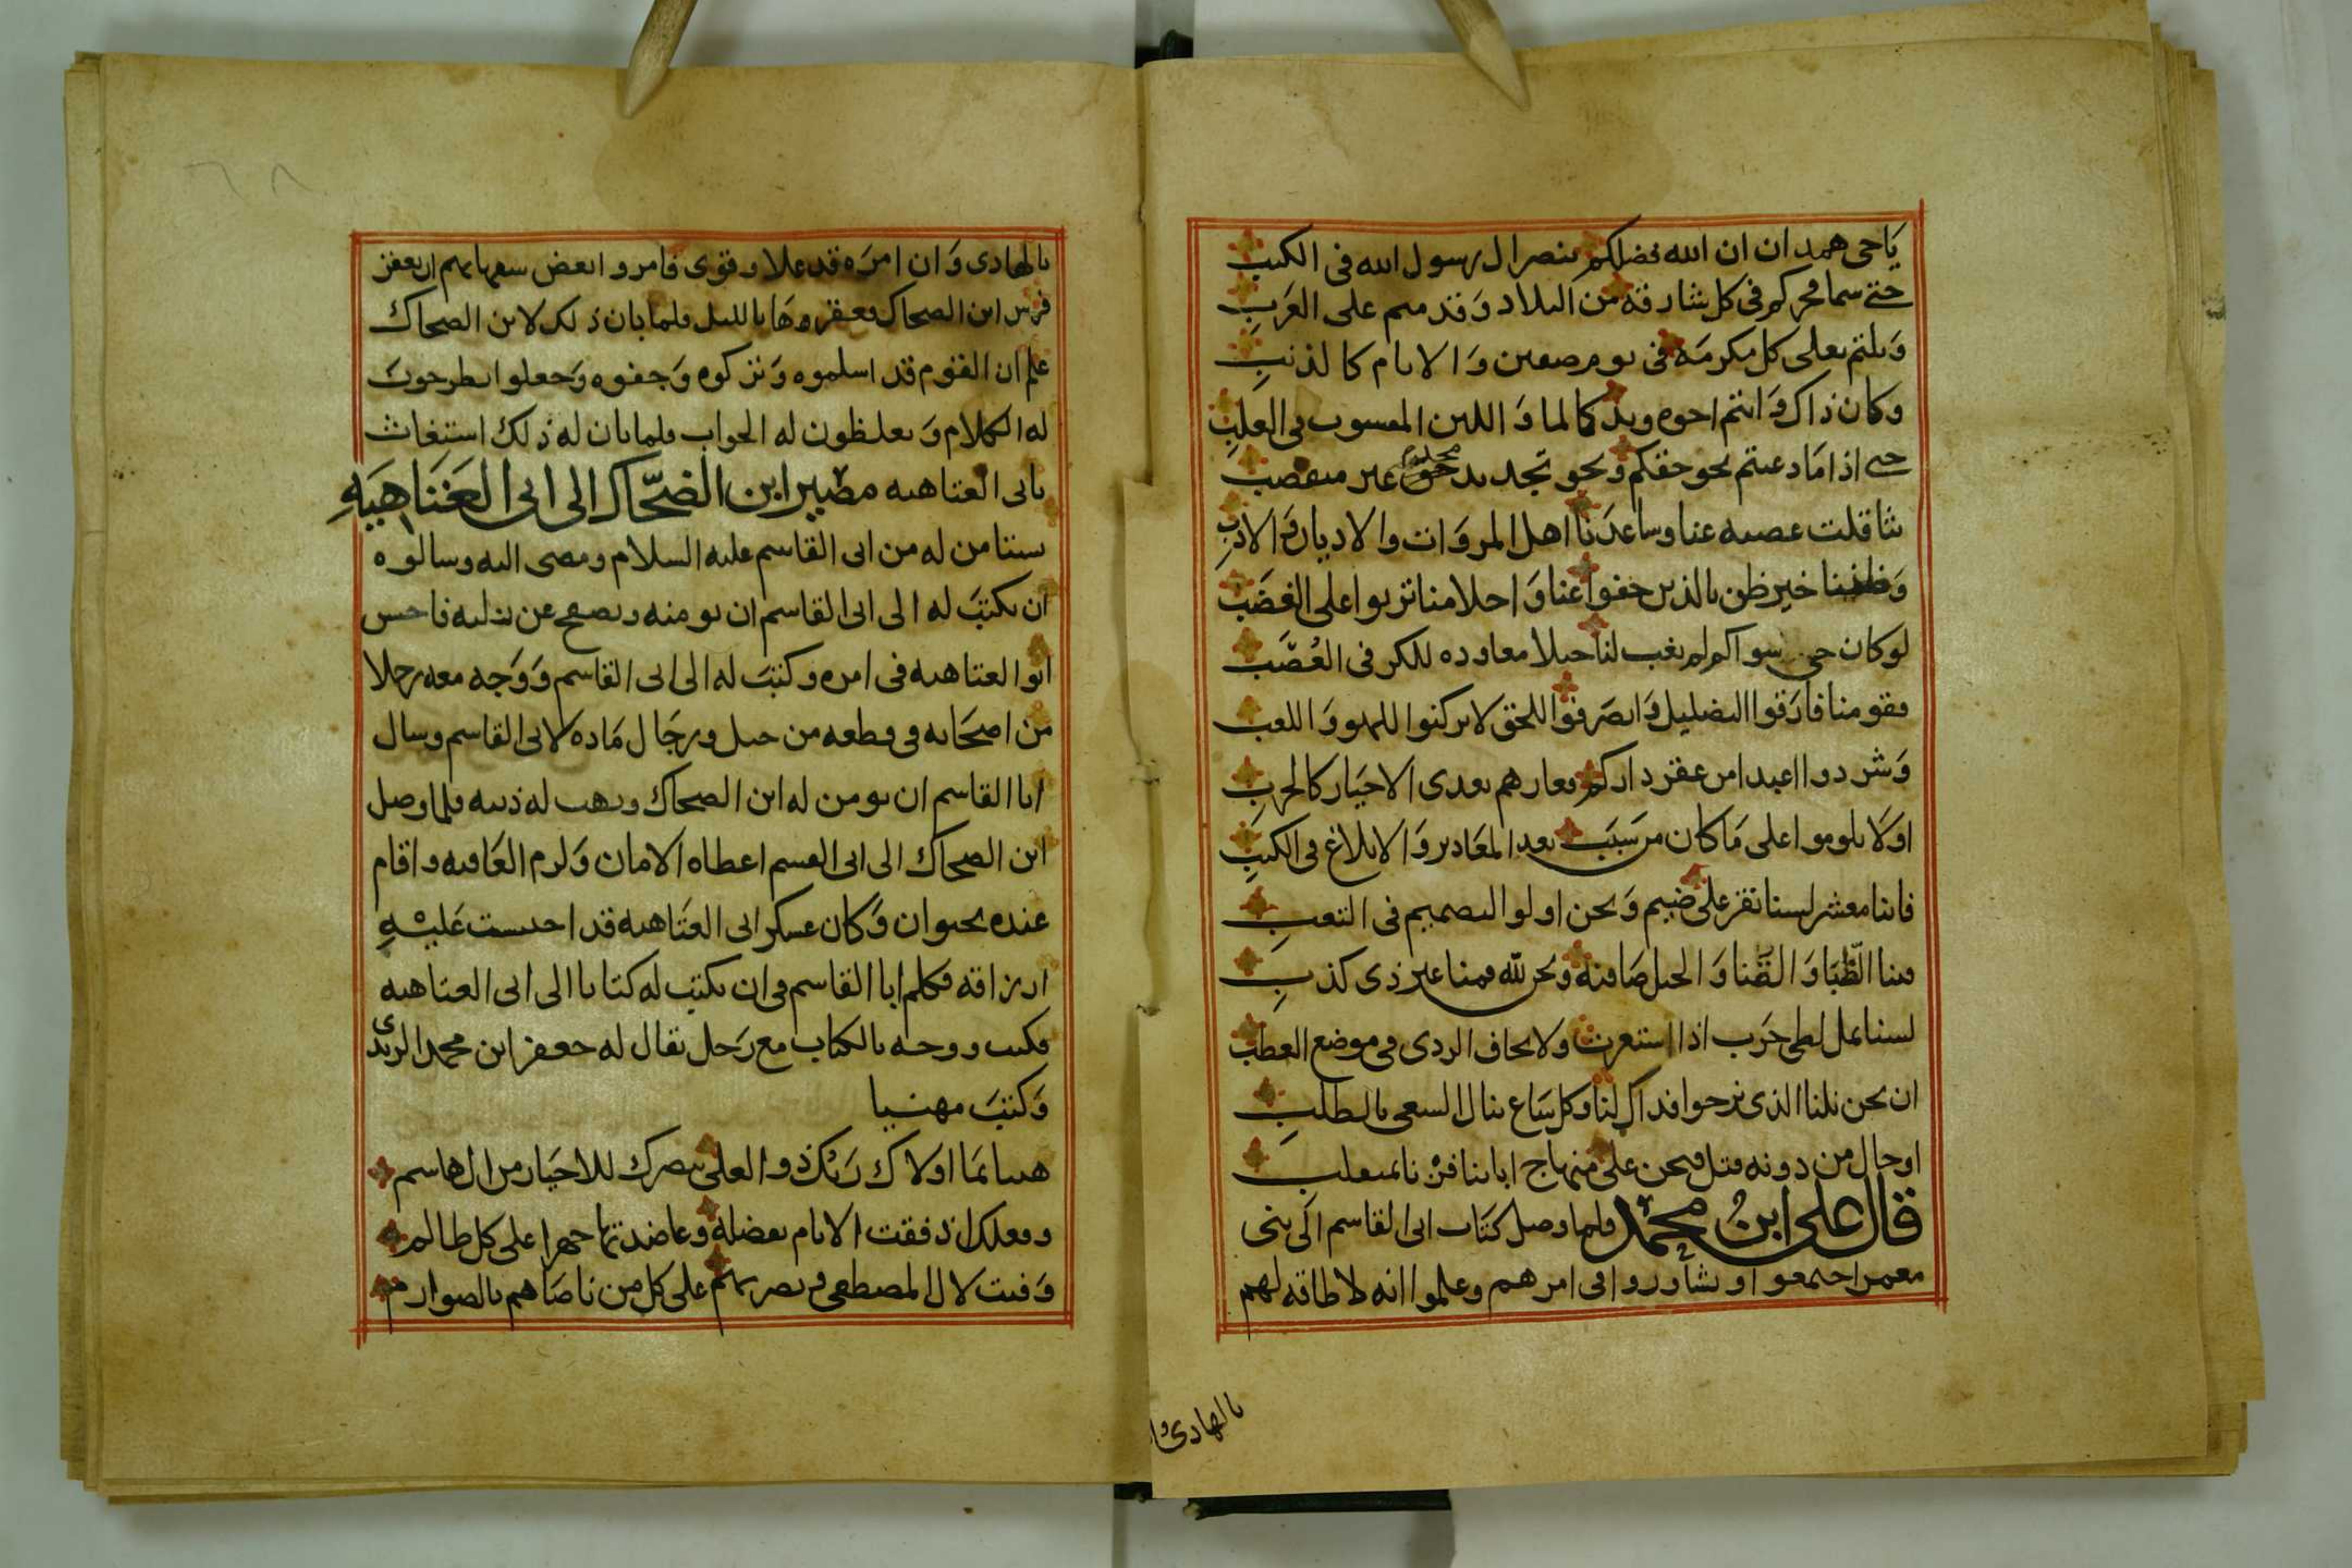 يَاحى همدان ان الله فضلكم بنصر ال رسول الله فى الكتب
حتى سما فخركم فى كل شارقه من البلاد وَقدمتم على العَرَبِ
وَنلتم بعلى كل مكرمَه فى يوم صفين وَالايام كالذنبِ
وكان ذاك وَانتم اخوه ويد كالماوَ اللبن المسوب فى العلبِ
حتى اذا مَا دعيتم نحو حقكم وَنحو تجديد حق غير مغتصب
تثاقلت عصبه عنا وساعدَنا اهل المروَات والاديان وَالادبِ
وَظننا خير ظن بالذين جفوا عنا وَاحلامنا تربوا على الغضَب
لوكان حى سواكم لم نغب لنا خيلا معاوده للكر فى العُصَب
فقومنا فارَقوا التضليل وَانصرَفوا للحق لا تركنوا للهو وَاللعب
وَشردوا اعبدا من عقر داركم فعارهم يعدى الاخيَار كالجربِ
اوَلَا يلوموا على مَا كان من سَبَب بعد المعَاذير وَالابلاغ فى الكتبِ
فاننا معشر لسنا نقر على ضيم وَنحن اولوا التصميم فى التعبِ
فينا الظّبَا وَالقَنا وَالخيل صَافنه ونحن لله فينا غير ذى كذبِ
لسنا نمل لظى حَرب اذا استعرت ولا نخاف الردى فى موضع العطب
ان نحن نلنا الذى نرجوا فذاك لنا وكل سَاع ينال السعى بالطلبِ
اوحال من دونه قتل فنحن على منهاج ابائنا فز نا بمنقلب
قال على ابن محمد فلما وصل كتَاب ابى القاسم الى بنى
معمر اجتمعوا وتشاوروا فى امرهم وعلموا انه لا طاقه لهم
بالهادى وا
بالهادى وَان امرَه قد علا وقوى فامروا بعض سفهايهم ان يعقر
فرس ابن الضحاك فعقروهَا بالليل فلما بان ذلك لابن الضحاك
علم ان القوم قد اسلموه وَتركوه وَجفوه وَجعلوا يطرحون
له الكلام وَيغلظون له الجواب فلما بان له ذلك استغاث
بابى العتاهيه مصير ابن الضحّاك الى ابى العَتَاهيَهِ
يستامن له من ابى القاسم عليه السلام ومضى اليه وسالوه
ان يكتبَ له الى ابى القاسم ان يومنه ويصفح عن زلته فاحسن
ابوا العتاهيه فى امره وكتبَ له الى ابى القاسم وَوَجه معه رجلا
من اصحَابه فى قطعه من خيل ورجَال مَاده لابى القاسم وسال
ابا القاسم ان يومن له ابن الضحاك ويهب له ذنبه فلما وصل
ابن الضحاك الى ابى القسم اعطاه الامان وَلزم العَافيه واقام
عنده بخيوان وَكان عسكر ابى العتَاهيه قد احتبست عَليْهِ
ارزاقه فكلم ابا القاسم فى ان يكتب له كتابا الى ابى العتاهيه
فكتب ووجه بالكتاب مع رَجل يقال له جعفر ابن محمد الزيدى
وَكتبَ مهنيا
هنيا بمَا اولاك رَبك ذو العلى بنصرك للاخيَار من ال هاسم
وفعلك اذ فقت الانام بفضله وعاضدتها جهرا على كل ظالم
وَقمت لال المصطفى فى نصرتهم على كل من ناصَاهم بالصوارم